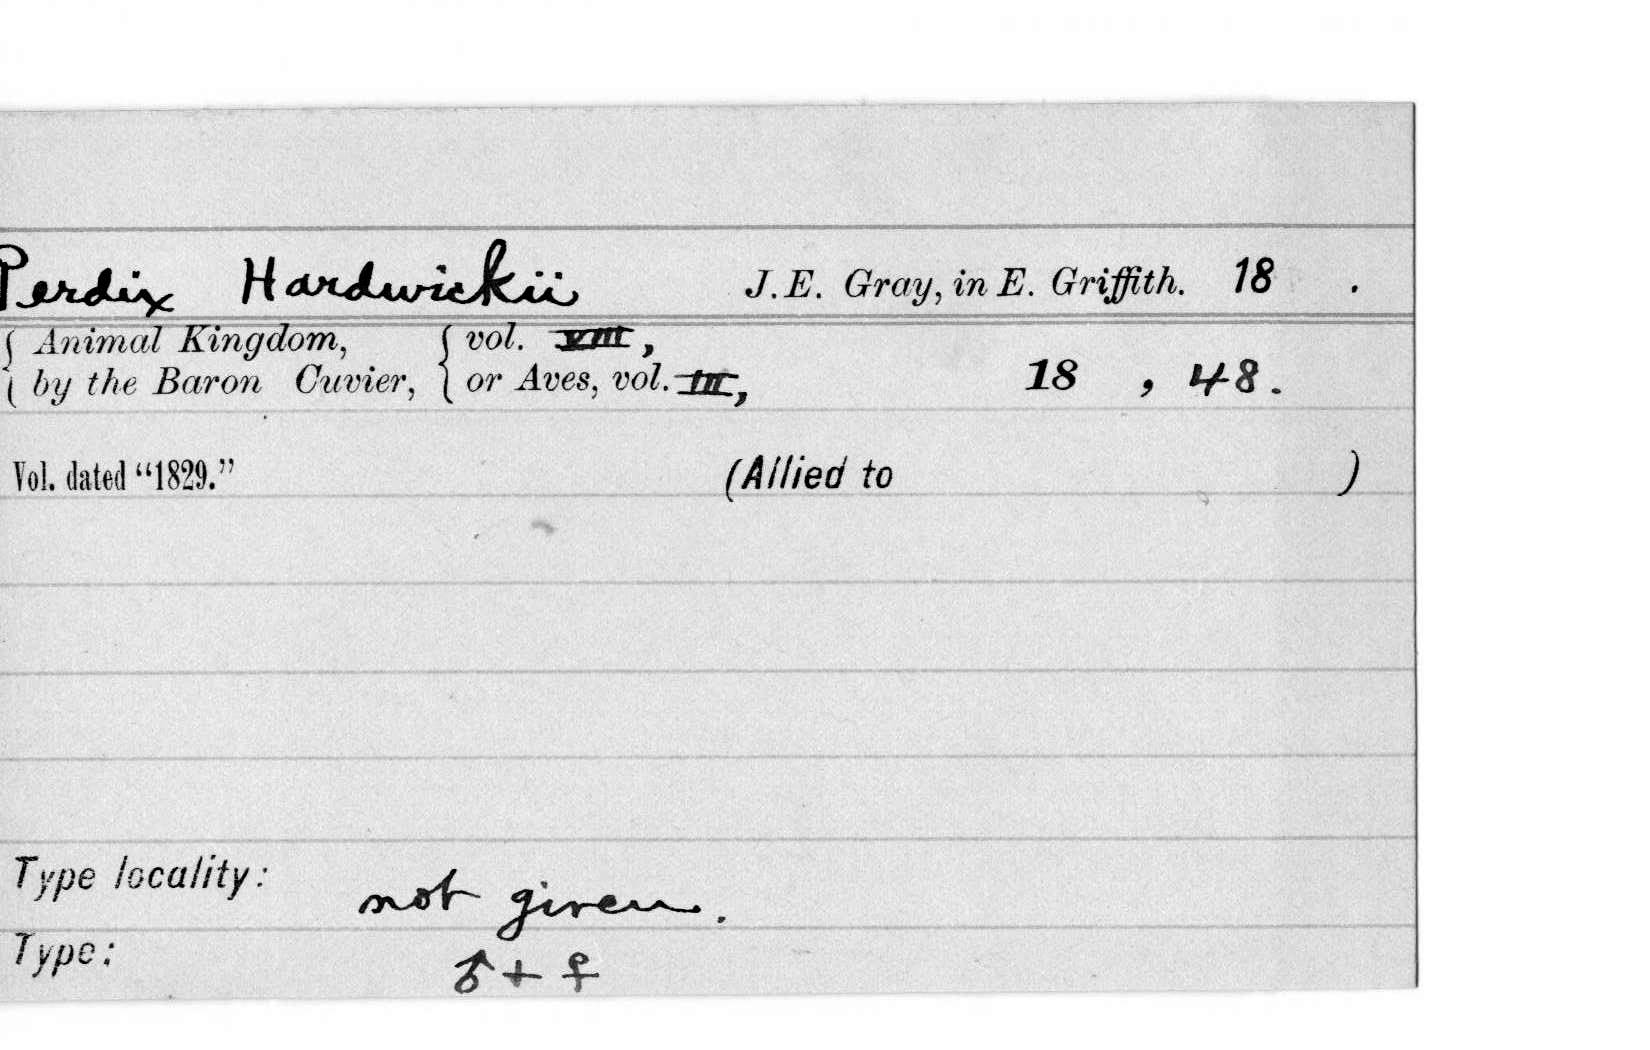 Perdix Hardwickii J.E. Gray, in E. Griffith. 18 .
{ Animal Kingdom, { vol. VIII,
{ by the Baron Cuvier, { or Aves, vol. III, 18 , 48.
Vol. dated “1829.” (Allied to )
Type locality: not given.
Type: ♂ + ♀